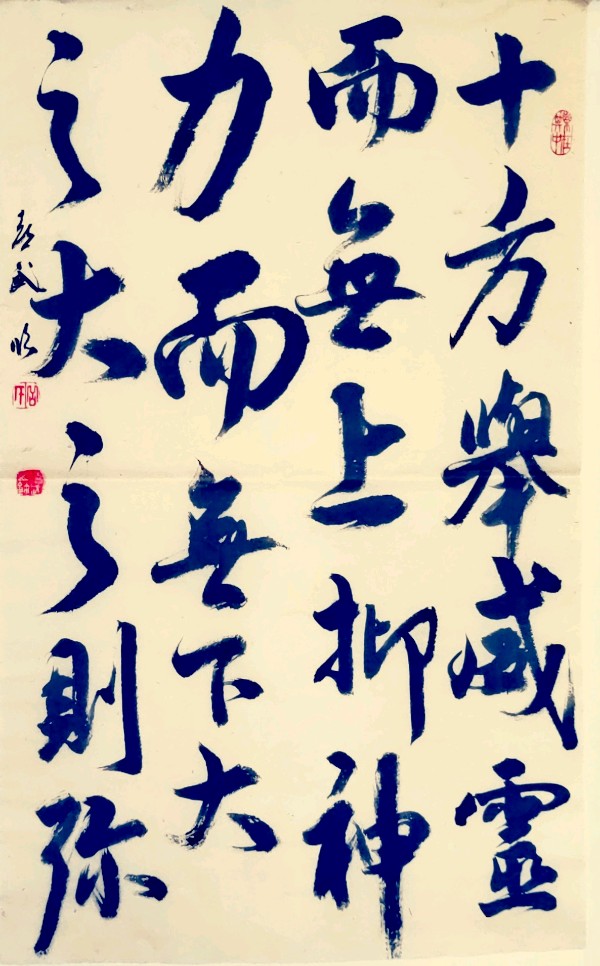 十方舉威靈
而無上抑神
力而無下大
之大之則弥
武